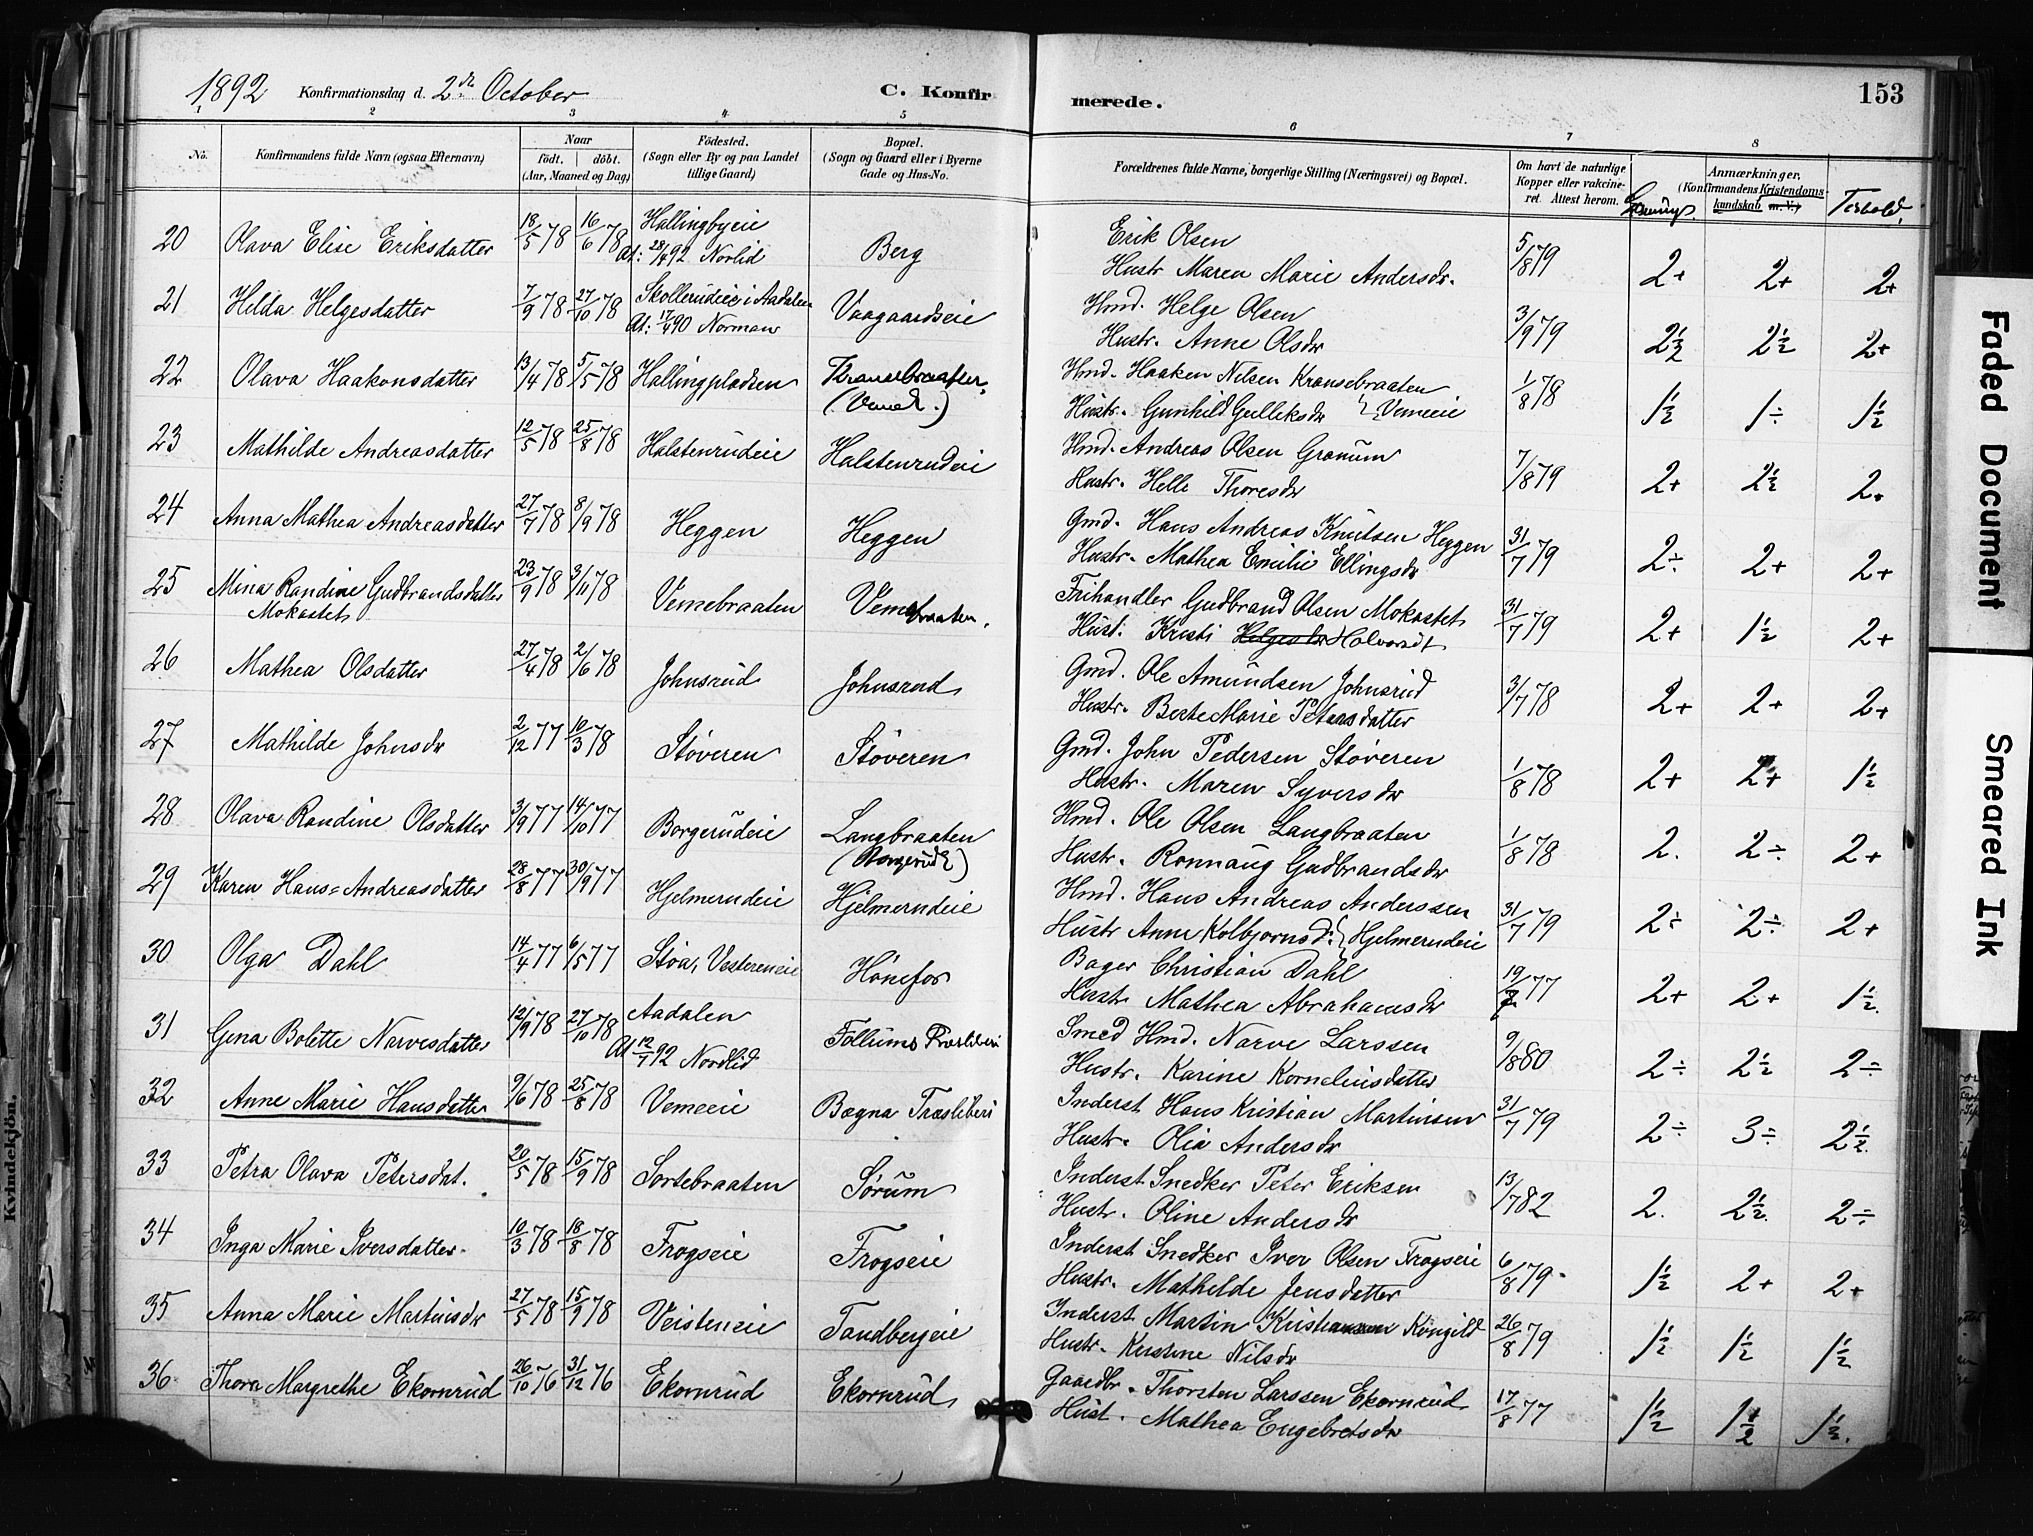 1892 Konfirmationsdag d. 2de October C. Konfirmerede. 153
1 2 3 4 5 6 7 8
No. Konfirmandens fulde Navn (ogsaa Efternavn) Naar födt. döbt. (Aar, Maaned og Dag) Födested. (Sogn eller By og paa Landet tillige Gaard) Bopæl. (Sogn og Gaard eller i Byerne Gade og Hus-No. Forældrenes fulde Navne, borgerlige Stilling (Næringsvei) og Bopæl. Om havt de naturlige Kopper eller vakcineret. Attest herom. Anmærkninger. (Konfirmandens Kristendomskundskab m.V.) Forhold.
20 Olava Elise Eriksdatter 18/5 78 16/6 78 Hallingbyeie Berg Erik Olsen 5/8 79 2+ 2+ 2+
At: 28/4 92 Norlid Hustr Maren Marie Andersdr.
21 Hilda Helgesdatter 7/9 78 27/10 78 Skollerudeie i Aadalen Vaagaardseie Hmd. Helge Olsen 3/9 79 2½ 2½ 2+
At: 17/4 90 Norman Hustr. Anne Olsdr
22 Olava Haakonsdatter 13/4 78 5/5 78 Hallingpladsen Kransebraaten Hmd. Haaken Nilsen Kransebraaten 1/8 78 1½ 1÷ 1½
Hustr. Gunhild Gulliksdr Vemeeie
23 Mathilde Andreasdatter 12/5 78 25/8 78 Halstenrudeie Halstenrudeie Hmd. Andreas Olsen Granum 7/8 79 2+ 2½ 2+
Hustr. Helle Thoresdr
24 Anna Mathea Andreasdatter 27/7 78 8/9 78 Heggen Heggen Gmd. Hans Andreas Knutsen Heggen 31/7 79 2÷ 2+ 2+
Hustr. Mathea Emilie Ellingsdr
25 Mina Randine Gudbrandsdatter 23/9 78 3/11 78 Vemebraaten Vemebraaten. Frihandler Gudbrand Olsen Mokastet 31/7 79 2+ 1½ 2+
Mokastet Hust. Kristi Helgesdr Halvorsdt
26 Mathea Olsdatter 27/4 78 2/6 78 Johnsrud Johnsrud Gmd. Ole Amundsen Johnsrud 3/7 78 2+ 2+ 2+
Hustr. Berte Marie Petersdatter
27 Mathilde Johnsdr 2/12 77 10/3 78 Støveren Støveren Gmd. John Pedersen Støveren 1/8 78 2+ 2+ 1½
Hustr. Maren Syversdr
28 Olava Randine Olsdatter 3/9 77 14/10 77 Borgerudeie Langbraaten Hmd. Ole Olsen Langbraaten 1/8 78 2. 2÷ 2+
(Borgerude) Hustr. Rønnaug Gudbrandsdr
29 Karen Hans=Andreasdatter 28/8 77 30/9 77 Hjelmerudeie Hjelmerudeie Hmd. Hans Andreas Anderssen 31/7 79 2÷ 2÷ 2+
Hustr Anne Kolbjørnsd. Hjelmerudeie
30 Olga Dahl 14/4 77 6/5 77 Støa, Vestereneie Hönefos Bager Christian Dahl 19/7 77 2+ 2+ 1½.
Hustr. Mathea Abrahamsdr
31 Gina Bolette Narvesdatter 12/9 78 27/10 78 Aadalen Follums Træsliberi Smed Hmd. Narve Larssen 9/8 80 2÷ 2½ 2÷
At 12/7 92 Nordlid Hustr. Karine Korneliusdatter
32 Anne Marie Hansdatter 9/6 78 25/8 78 Vemeeie Bægna Træsliberi Inderst Hans Kristian Martinsen 31/7 79 2÷ 3÷ 2½.
Hustr. Olia Andersdr
33 Petra Olava Petersdat. 20/5 78 15/9 78 Sortebraaten Sørum Inderst Snedker Peter Eriksen 13/7 82 2. 2½. 2÷
Hustr. Oline Andersdr
34 Inga Marie Iversdatter. 10/3 78 18/8 78 Frogseie Frogseie Inderst Snedker Iver Olsen Frogseie 6/8 79. 1½ 2+ 2+
Hustr. Mathilde Jensdatter
35 Anna Marie Martinsdr 27/5 78 15/9 78 Veisteneie Tandbergeie Inderst Martin Kristiansen Kongild 26/8 79 1½ 1½ 1½
Hustr. Kirstine Nilsdr
36 Thora Margrethe Ekornrud 26/10 76 31/12 76 Ekornrud Ekornrud Gaardbr. Thorsten Larssen Ekornrud 17/8 77 1½ 1½ 1½.
Hust. Mathea Engebretsdr
Kvindekjön.
Faded Document
Smeared Ink